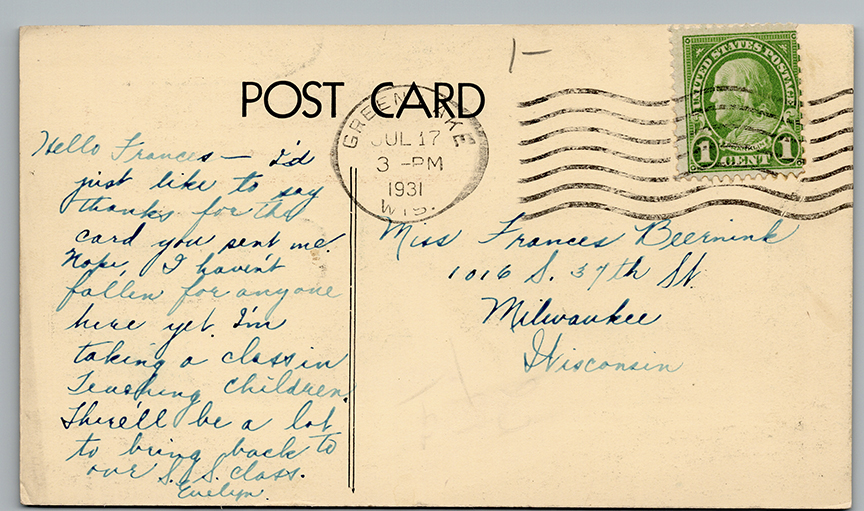 1-
POST CARD
GREEN LAKE
JUL 17
3 -PM
1931
WIS.
UNITED STATES POSTAGE
FRANKLIN
1 CENT 1
Hello Frances — I'd
just like to say
thanks for the
card you sent me.
Nope, I haven't
fallen for anyone
here yet. I'm
taking a class in
Teaching Children.
There'll be a lot
to bring back to
our S.S. class.
Evelyn.
Miss Frances Beernink
1016 S. 37th St.
Milwaukee
Wisconsin